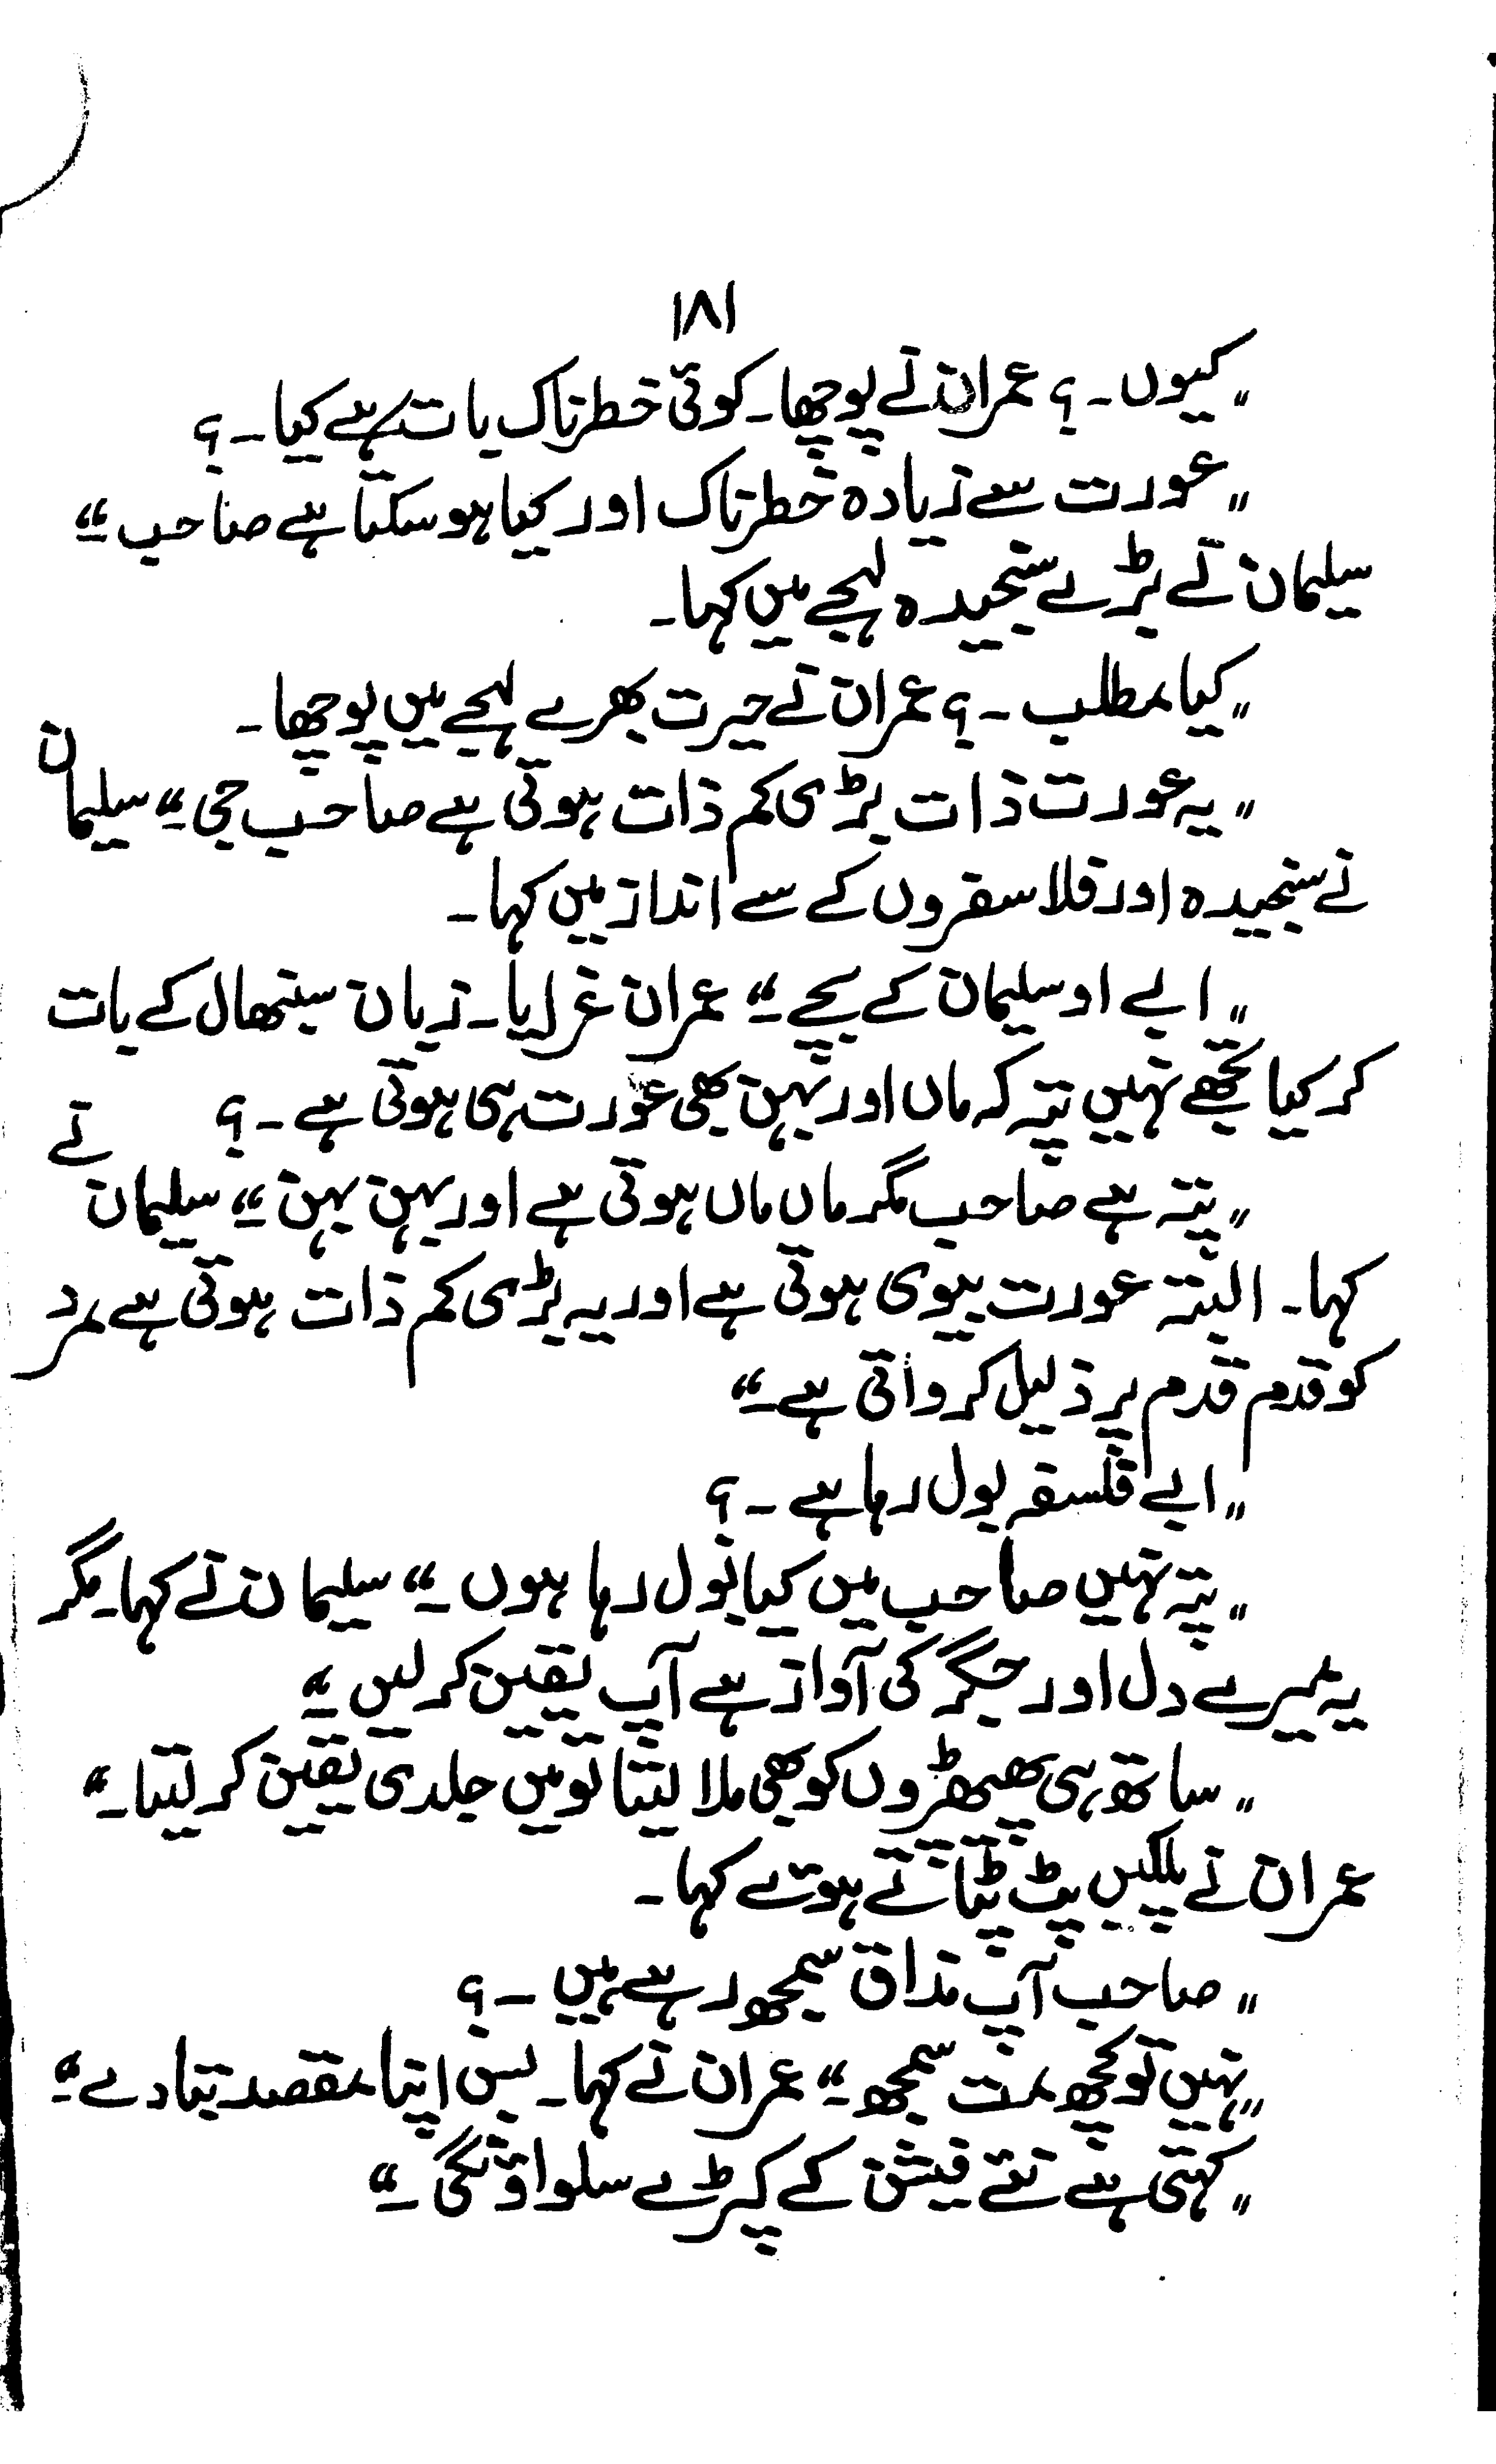 ۱۸۱
"کیوں۔؟ عمران نے پوچھا۔ کوئی خطرناک بات ہے کیا۔؟
"عورت سے زیادہ خطرناک اور کیا ہو سکتا ہے صاحب۔"
سلیمان نے بڑے سنجیدہ لہجے میں کہا۔
"کیا مطلب۔؟ عمران نے حیرت بھرے لہجے میں پوچھا۔
"یہ عورت ذات بڑی کم ذات ہوتی ہے صاحب جی۔" سلیمان
نے سنجیدہ اور فلاسفروں کے سے انداز میں کہا۔
"ابے او سلیمان کے بچے۔" عمران غرایا۔ زبان سنبھال کے بات
کر کیا تجھے نہیں پتہ کہ ماں اور بہن بھی عورت ہی ہوتی ہے۔؟
"پتہ ہے صاحب مگر ماں ماں ہوتی ہے اور بہن بہن۔" سلیمان نے
کہا۔ البتہ عورت بیوی ہوتی ہے اور یہ بڑی کم ذات ہوتی ہے مرد
کو قدم قدم پر ذلیل کرواتی ہے۔"
"ابے فلسفہ بول رہا ہے۔؟
"پتہ نہیں صاحب میں کیا بول رہا ہوں۔" سلیمان نے کہا۔ مگر
یہ میرے دل اور جگر کی آواز ہے آپ یقین کر لیں۔"
"ساتھ ہی پھیپھڑوں کو بھی ملا لیتا تو میں جلدی یقین کر لیتا۔"
عمران نے پلکیں پٹ پٹاتے ہوئے کہا۔
"صاحب آپ مذاق سمجھ رہے ہیں۔؟
"نہیں تو کچھ مت سمجھ۔" عمران نے کہا۔ بس اپنا مقصد بتا دے۔"
"کہتی ہے نئے فیشن کے کپڑے سلواؤنگی۔"